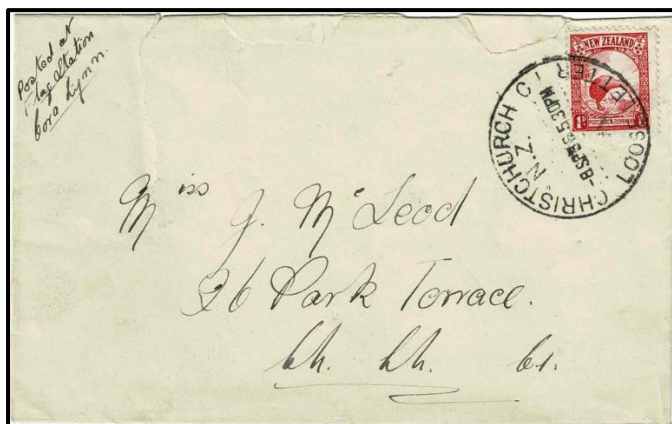 Posted at
Flag Station
Cora Lynn.
NEW ZEALAND
1D
CHRISTCHURCH C 1
LOOSE LETTER
N.Z.
-8 SP 36 5 30 PM
Miss J. McLeod
26 Park Terrace.
Ch. Ch. C1.